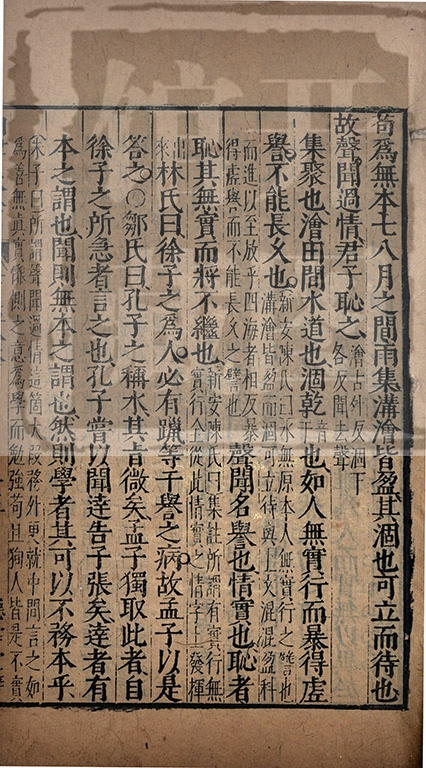 苟爲無本七八月之間雨集溝澮皆盈其涸也可立而待也
故聲聞過情君子恥之澮古外反涸下各反聞去聲
集聚也澮田間水道也涸乾音也如人無實行而暴得虛
譽不能長久也新安陳氏曰水無原本人無實行之譬也溝澮皆盈而涸可立待與上文混混盈科
而進以至放乎四海者相反暴得虛譽而不能長久之譬也聲聞名譽也情實也恥者
恥其無實而將不繼也新安陳氏曰集註所謂有實行無實行全從此情實之情字上發揮
出來林氏曰徐子之爲人必有躐等干譽之病故孟子以是
答之○鄒氏曰孔子之稱水其旨微矣孟子獨取此者自
徐子之所急者言之也孔子嘗以聞達告子張矣達者有
本之謂也聞則無本之謂也然則學者其可以不務本乎
朱子曰所謂聲聞過情這箇大段務外更就中間言之如爲善無真實懇惻之意爲學而勉強苟且徇人皆是不實